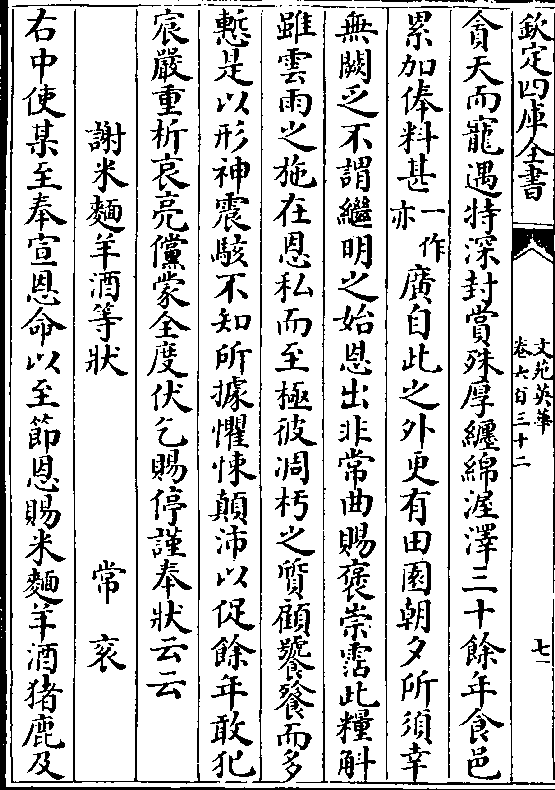 欽定四庫全書
文苑英華
卷七百三十二
七
貪天而寵遇持深封賞殊厚纏綿渥澤三十餘年食邑
累加俸料甚一作亦廣自此之外更有田園朝夕所須幸
無闕乏不謂繼明之始恩出非常曲賜褒崇霑此糧斛
雖雲雨之施在恩私而至極彼凋朽之質顧饕餮而多
慙是以形神震駭不知所據懼悚顛沛以促餘年敢犯
宸嚴重祈哀亮儻蒙全度伏乞賜停謹奉狀云云
謝米麵羊酒等狀 常袞
右中使某至奉宣恩命以至節恩賜米麵羊酒猪鹿及